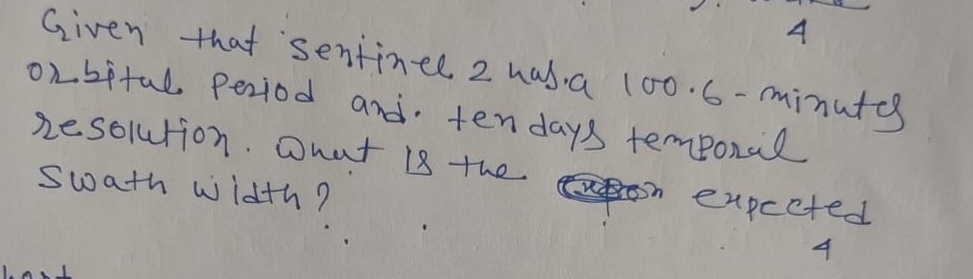 4
Given that Sentinel 2 has a 100.6-minutes
orbital Period and. ten days temporal
resolution. What is the expected
Swath width?
4